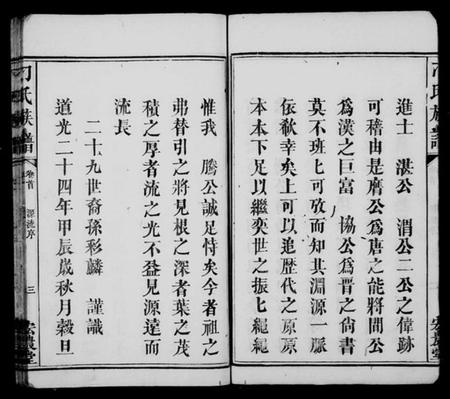 進士　湛公　渭公二公之偉跡
可稽由是齊公為唐之能將間公
為漢之巨富　協公為晉之尚書
莫不班班可攷而知其淵源一脈
依欷幸矣上可以追歷代之原原
本本下足以繼奕世之振振繩繩
惟我　騰公誠足恃矣今者祖之
弗替引之將見根之深者葉之茂
積之厚者流之光不益見源遠而
流長
二十九世裔孫彩麟　謹識
道光二十四年甲辰歲秋月穀旦
刁氏族譜
卷首　源流序　三